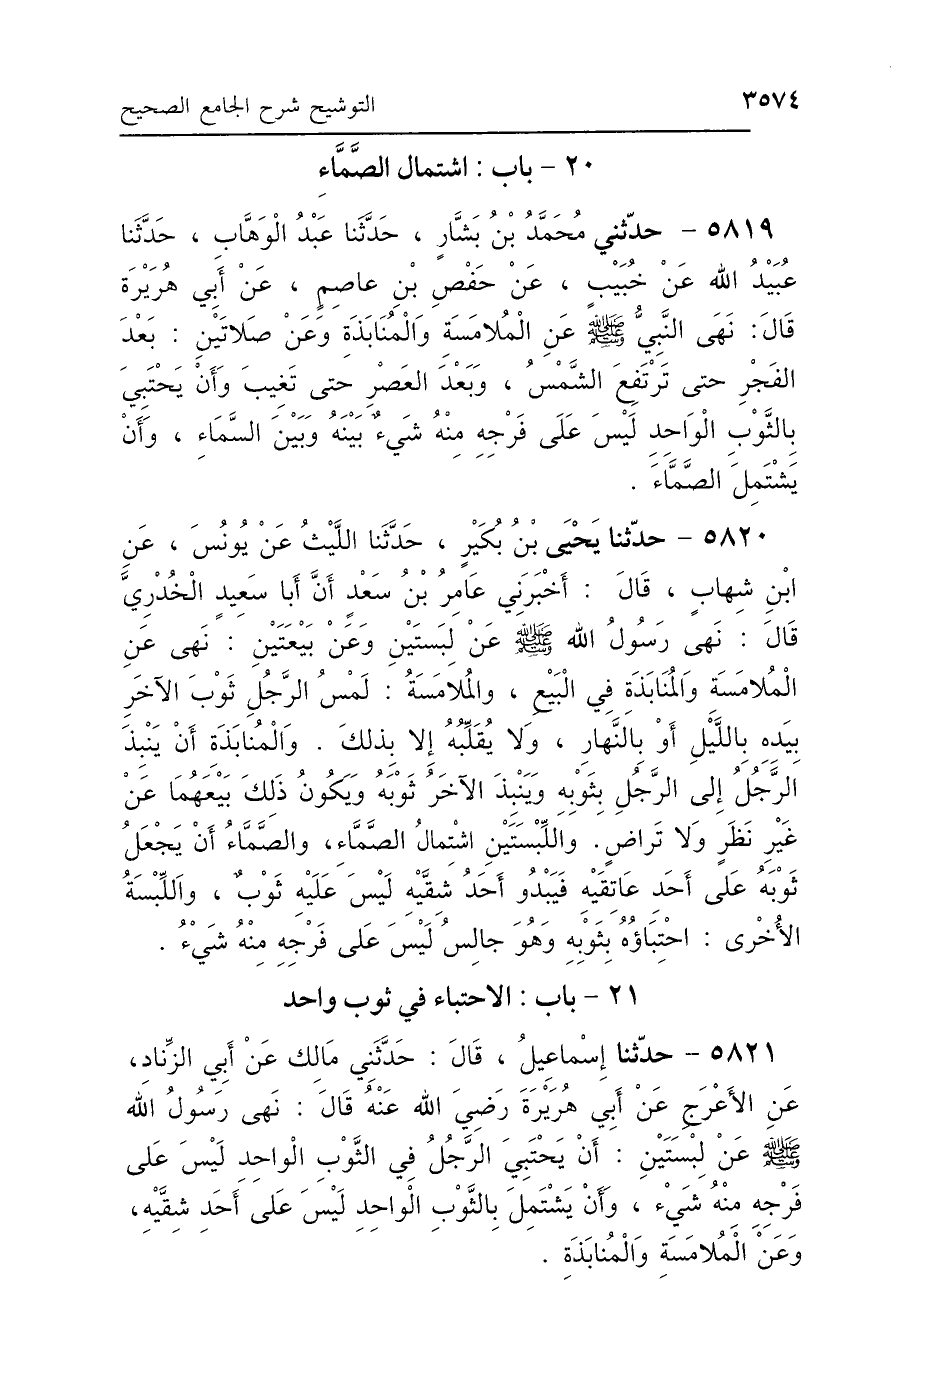 ٣٥٧٤ التوشيح شرح الجامع الصحيح
٢٠ - باب : اشتمال الصَّمَّاء
٥٨١٩ - حدّثني مُحَمَّدُ بْنُ بَشَّارٍ ، حَدَّثَنا عَبْدُ الْوَهَّابِ ، حَدَّثَنا
عُبَيْدُ الله عَنْ خُبَيْبٍ ، عَنْ حَفْصِ بْنِ عاصِمٍ ، عَنْ أبي هُرَيْرَةَ
قَالَ: نَهَى النَّبِيُّ ﷺ عَنِ الْمُلامَسَةِ وَالْمُنَابَذَةِ وَعَنْ صَلاتَيْنِ : بَعْدَ
الفَجْرِ حتى تَرْتَفِعَ الشَّمْسُ ، وَبَعْدَ العَصْرِ حتى تَغِيبَ وَأنْ يَحْتَبِيَ
بِالثَّوْبِ الْوَاحِدِ لَيْسَ عَلَى فَرْجِهِ مِنْهُ شَيءٌ بَيْنَهُ وَبَيْنَ السَّمَاءِ ، وَأَنْ
يَشْتَمِلَ الصَّمَّاءَ .
٥٨٢٠ - حدّثنا يَحْيَى بْنُ بُكَيْرٍ ، حَدَّثَنَا اللَّيْثُ عَنْ يُونُسَ ، عَنِ
ابْنِ شِهابٍ ، قَالَ : أَخْبَرَنِي عَامِرُ بْنُ سَعْدٍ أَنَّ أبا سَعِيدٍ الْخُدْرِيَّ
قَالَ : نَهى رَسُولُ الله ﷺ عَنْ لِبَسَتَيْنِ وَعَنْ بَيعَتَيْنِ : نَهى عَنِ
الْمُلامَسَةِ وَالمُنَابَذَةِ فِي الْبَيْعِ ، والمُلامَسَةُ : لَمْسُ الرَّجُلِ ثَوْبَ الآخَرِ
بِيَدِهِ بِاللَّيْلِ أَوْ بالنَّهارِ ، وَلا يُقَلِّبُهُ إلا بِذلكَ . وَالْمُنَابَذَةُ أنْ يَنْبِذَ
الرَّجُلُ إلى الرَّجُلِ بِثَوْبِهِ وَيَنْبِذَ الآخَرُ ثَوْبَهُ وَيَكُونُ ذَلِكَ بَيْعَهُمَا عَنْ
غَيْرِ نَظَرٍ وَلا تَراضٍ. واللِّبْسَتَيْنِ اشْتِمالُ الصَّمَّاءِ، والصَّمَّاءُ أنْ يَجْعَلُ
ثَوْبَهُ عَلَى أَحَدِ عَاتِقَيْهِ فَيَبْدُو أَحَدُ شِقَّيْهِ لَيْسَ عَلَيْهِ ثَوْبٌ ، وَاللِّبْسَةُ
الأُخْرى : احْتِبَاؤُهُ بِثَوْبِهِ وَهُوَ جالِسٌ لَيْسَ عَلى فَرْجِهِ مِنْهُ شَيْءٌ .
٢١ - باب : الاحتباء في ثوب واحد
٥٨٢١ - حدّثنا إسْماعيلُ ، قَالَ : حَدَّثَنِي مَالِك عَنْ أَبي الزِّنادِ،
عَنِ الأَعْرَجِ عَنْ أَبي هُرَيْرَةَ رَضِيَ الله عَنْهُ قَالَ : نَهى رَسُولُ الله
ﷺ عَنْ لِبْسَتَيْنِ : أنْ يَحْتَبِيَ الرَّجُلُ فِي الثَّوْبِ الْواحِدِ لَيْسَ عَلى
فَرْجِهِ مِنْهُ شَيْء ، وَأَنْ يَشْتَمِلَ بِالثَّوْبِ الْواحِدِ لَيْسَ عَلى أَحَدِ شِقَّيْهِ،
وَعَنْ الْمُلامَسَةِ وَالْمُنابَذَةِ .